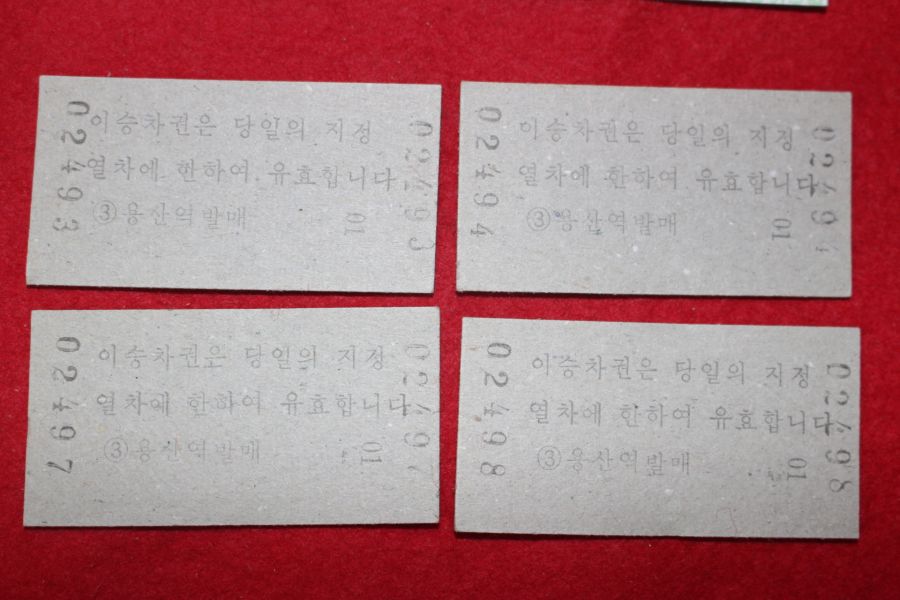 02493
이승차권은 당일의 지정
열차에 한하여 유효합니다
③용산역발매
01
02493
02494
이승차권은 당일의 지정
열차에 한하여 유효합니다
③용산역발매
01
02494
02497
이승차권은 당일의 지정
열차에 한하여 유효합니다
③용산역발매
01
02497
02498
이승차권은 당일의 지정
열차에 한하여 유효합니다
③용산역발매
01
02498